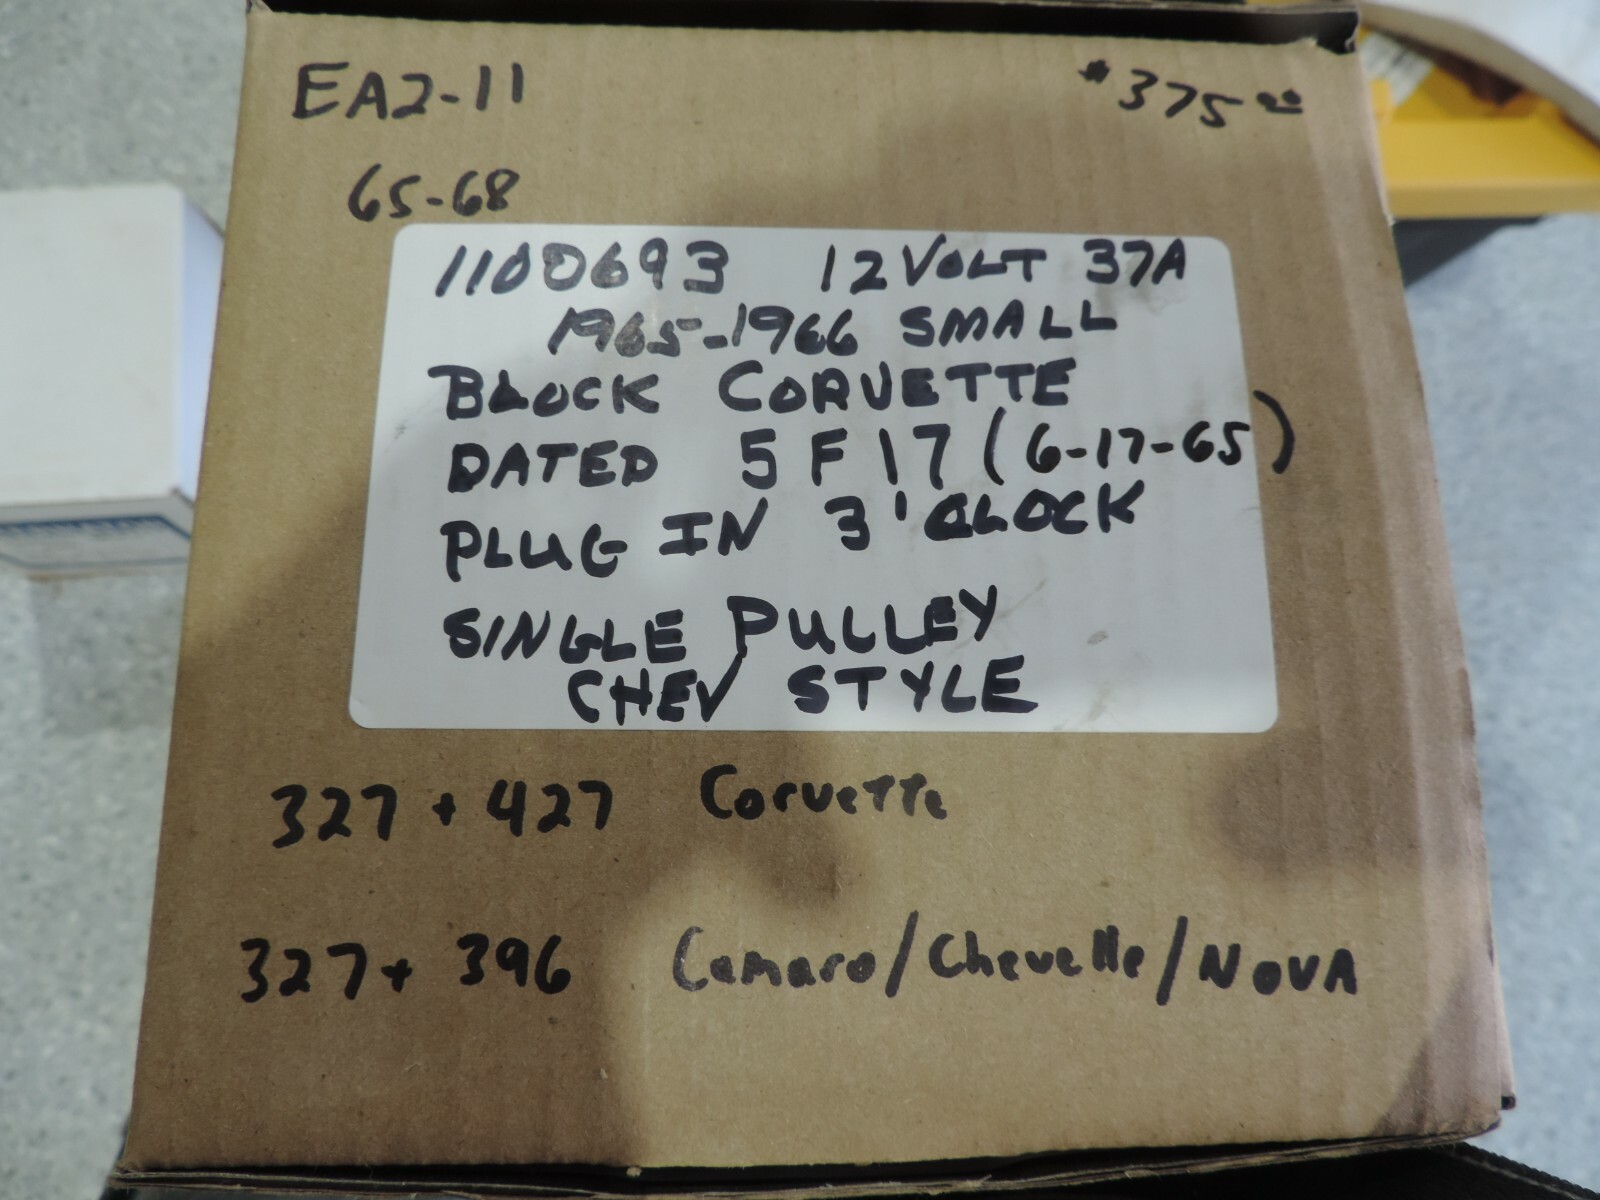 EA2-11
$375.00
65-68
1100693 12 VOLT 37A
1965-1966 SMALL
BLOCK CORVETTE
DATED 5 F 17 (6-17-65)
PLUG IN 3'CLOCK
SINGLE PULLEY
CHEV STYLE
327 + 427 Corvette
327 + 396 Camaro/Chevelle/NOVA